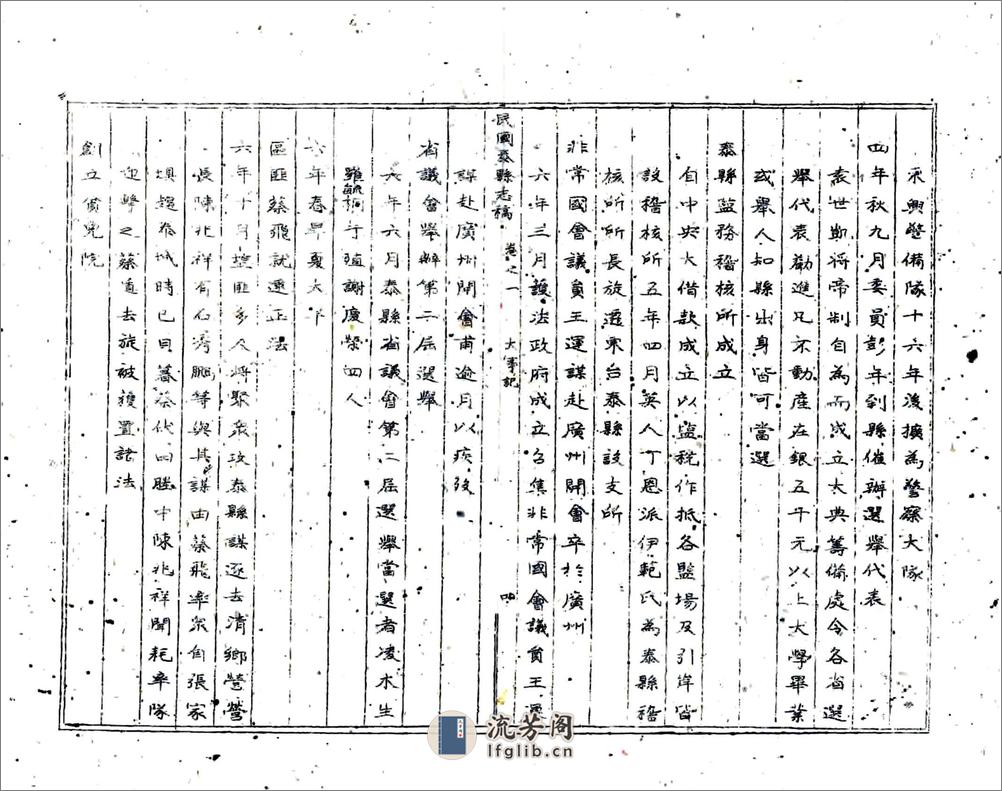 永興警備隊十六年後擴為警察大隊
四年秋九月委員彭年到縣催辦選舉代表
袁世凱將帝制自為而成立大典籌備處令各省選
舉代表勸進凡不動產在銀五千元以上大學畢業
或舉人知縣出身皆可當選
泰縣監務稽核所成立
自中央大借款成立以監稅作抵各監場及引岸皆
設稽核所五年四月英人丁恩派伊範氏為泰縣稽
核所所長放還東台泰縣設支所
非常國會議員王運謀赴廣州開會卒於廣州
六年三月護法政府成立召集非常國會議員王運
民國泰縣志稿 卷之一 大事記
謀赴廣州開會甫逾月以疾歿
省議會舉辦第二屆選舉
六年六月泰縣省議會第二屆選舉當選者凌木生
謝慶榮四人
六年春旱夏大
區匪蔡飛就逮正法
六年十月 匪多人將聚眾攻泰縣謀逐去清鄉營營
長陳兆祥有石秀鵬等與其謀由蔡飛率眾自張家
壩趨泰城時已目暮 四勝中陳兆祥聞耗率隊
迎擊之蔡遁去旋被獲置諸法
創立貧兒院
流芳阁
lfglib.cn